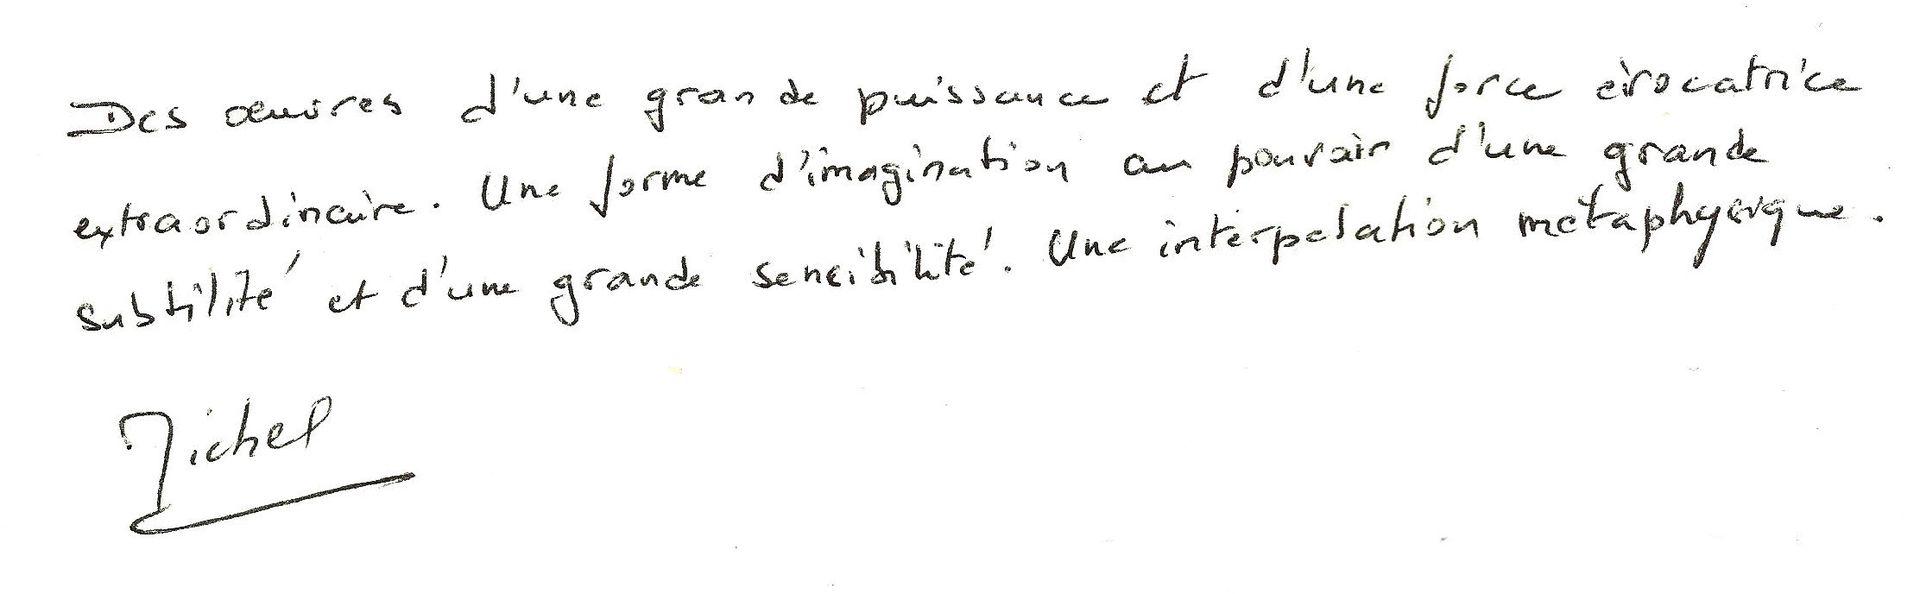 Des œuvres d'une grande puissance et d'une force évocatrice
extraordinaire. Une forme d'imagination au pouvoir d'une grande
subtilité et d'une grande sensibilité. Une interpelation métaphysique.
Michel